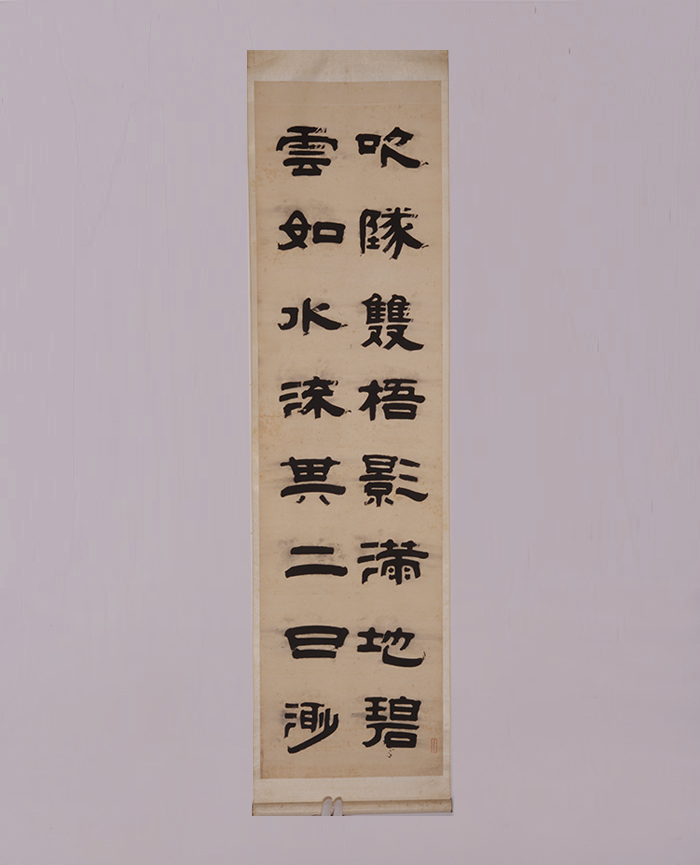 吹隊雙梧影滿地碧
雲如水流其二曰渺